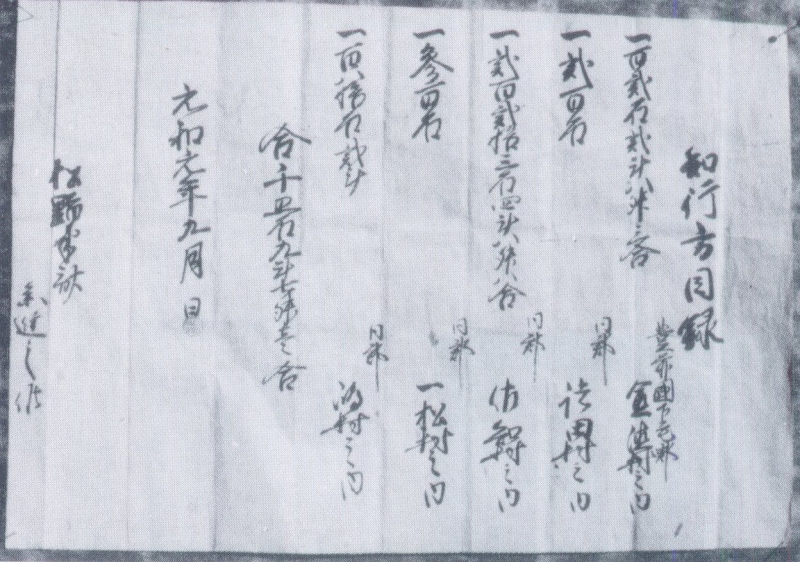 知行方目録
一百弐石弐斗八升三合
豊前国下毛郡
之内
一弐百石
同郡
田村之内
一弐百弐拾三石四斗八升八合
同郡
佐知村之内
一参百石
同郡
一松村之内
一百八拾石弐斗
同郡
村之内
合千四石九斗七升壱合
元和元年九月日
松野主計
参